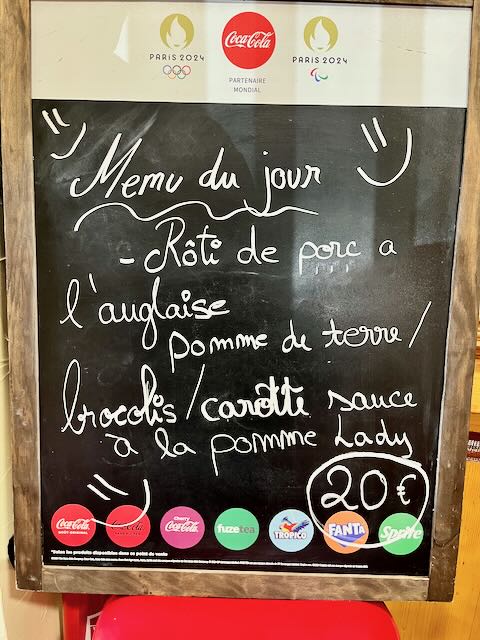 PARIS 2024
Coca-Cola
PARIS 2024
PARTENAIRE
MONDIAL
Menu du jour
- Rôti de porc a
l'auglaise
pomme de terre/
brocolis/carotte sauce
à la pomme Lady
20€
Coca-Cola
GOÛT ORIGINAL
Coca-Cola
Cherry
Coca-Cola
fuzetea
TROPICO
FANTA
Sprite
*Selon les produits disponibles dans ce point de vente